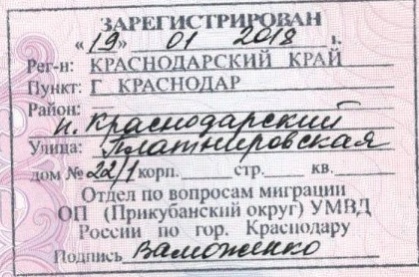 ЗАРЕГИСТРИРОВАН
«19» 01 2018 г.
Рег-н: КРАСНОДАРСКИЙ КРАЙ
Пункт: Г КРАСНОДАР
Район:
п. Краснодарский
Улица: Платнировская
дом № 22/1 корп. стр. кв.
Отдел по вопросам миграции
ОП (Прикубанский округ) УМВД
России по гор. Краснодару
Подпись